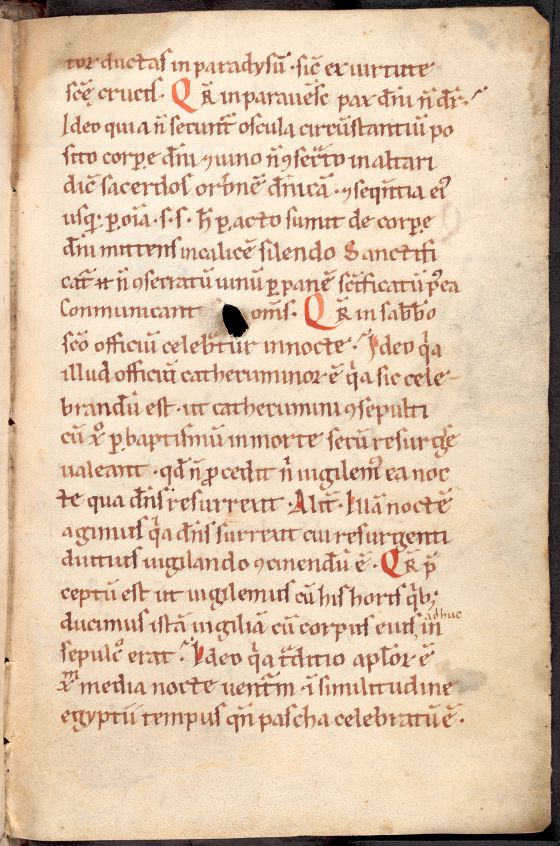 tor ductas in paradysū · sic̄ ex uirtute
scē crucis. QR̄ in parauesc̄ pax dn̄i n̄ dr̄.
Ideo quia n̄ secunt̄ oscula circūstantiū po
sito corpe dn̄i ⁊ uino n̄ ɔsecrāto in altari
dic̄ sacerdos or̄onē dn̄icā · ⁊ seqn̄tia ei᾽
usq; p om̄ia · s · s · h̄ pacto sumit de corpe
dn̄i mittens in calicē silendo Sanctifi
cat̄ n̄ ɔsecratū uinū p panē sc̄ificatū. p̄ea
Conmunicant om̄s. QR̄ in sabb̄o
sc̄o officiū celebr̄tur in nocte. Ideo q̄a
illud officiū cathecuminor̄ ē q̄a sic cele-
brandū est · ut cathecumini ɔsepulti
cū xp̄o p baptismū in morte secū resurge
ualeant · qd̄ n̄ p̄cedit n̄ uigilem᾽ ea noc
te qua dn̄s resurrexit · Alit̄. Illā noctē
agimus q̄a dn̄s surrexit cui resurgenti
duttus uigilando ɔcinendū ē · QR̄ p̄
ceptū est ut uigilemus cū his horis q̄b;
ducimus istā uigiliā cū corpus eius adhuc in
sepulc᾽ erat. Ideo q̄a t̄ditio apl̄or̄ ē
xp̄m media nocte uent̄m · ī similitudine
egyptii tempus qn̄ pascha celebratū ē ·